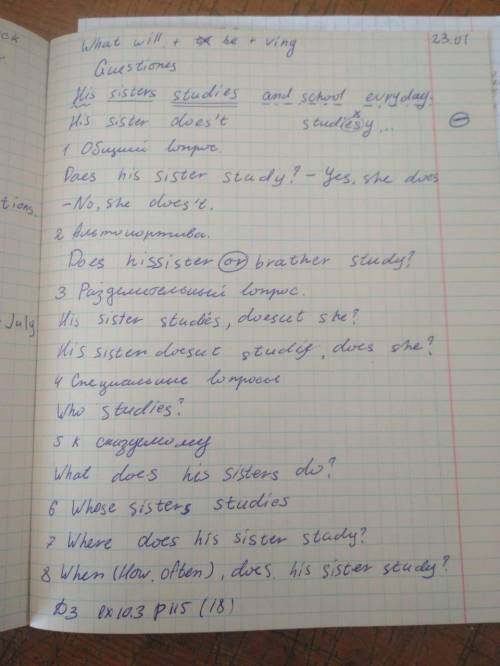 What will + be + ving 23.01
Questiones
His sisters studies and school euryday.
His sister does't studiesy...
1 Общий вопрос.
Does his sister study? - Yes, she does
- No, she does't.
2 Альтонортива.
Does hissister or brather study?
3 Разделительный вопрос.
His sister studies, doesut she?
His sister doesut studie, does she?
4 Специальние вопросы
Who studies?
5 к сказуемому
What does his sisters do?
6 Whose sisters studies
7 Where does his sister study?
8 When (How often), does his sister study?
Дз ex10.3 p115 (18)
tions.
July